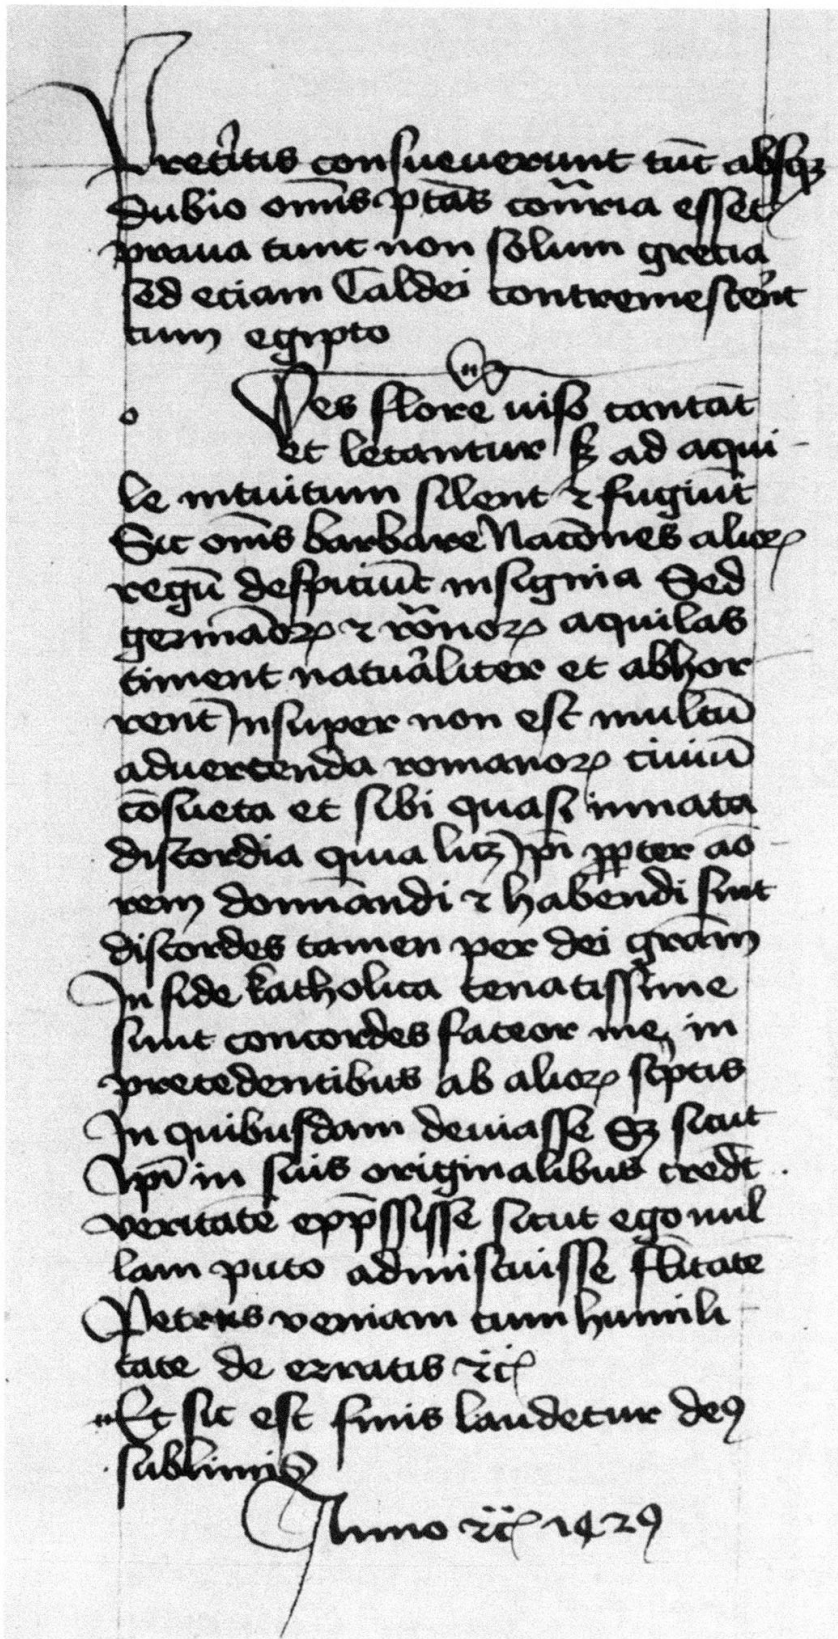 Preteritis consueuerunt tūc absqꝫ
dubio om̄s ptās cont̄ria esset
praua tunc non solum grecia
sed eciam Caldei contremescer̄nt
cum egipto
Aues flore uiso cantāt
et letantur sꝫ ad aqui
le intuitum silent ⁊ fugiūt
Sic om̄s barbare Nacōnes alioꝝ
regū despiciūt insignia Sed
germāoꝝ ⁊ rōnoꝝ aquilas
timent naturaliter et abhor
rent Insuper non est multū
aduertenda romanoꝝ ciuiū
cōsueta et sibi quasi innata
discordia quia licꝫ ip̄i propter amō
rem domnandi ⁊ habendi sint
discordes tamen per dei grām
In fide katholica tenacissime
sunt concordes fateor me in
precedentibus ab alioꝝ scptis
In quibusdam deuiasse Sꝫ sicut
Ip̄i in suis originalibus credūt
veritatē exp̄ssisse sicut ego nul
lam puto admiscuisse fl̄itatē
Petens veniam cum humili
tate de erratis ⁊cꝫ
Et sic est finis laudetur deꝰ
sublimis
Anno ⁊cꝫ 1429